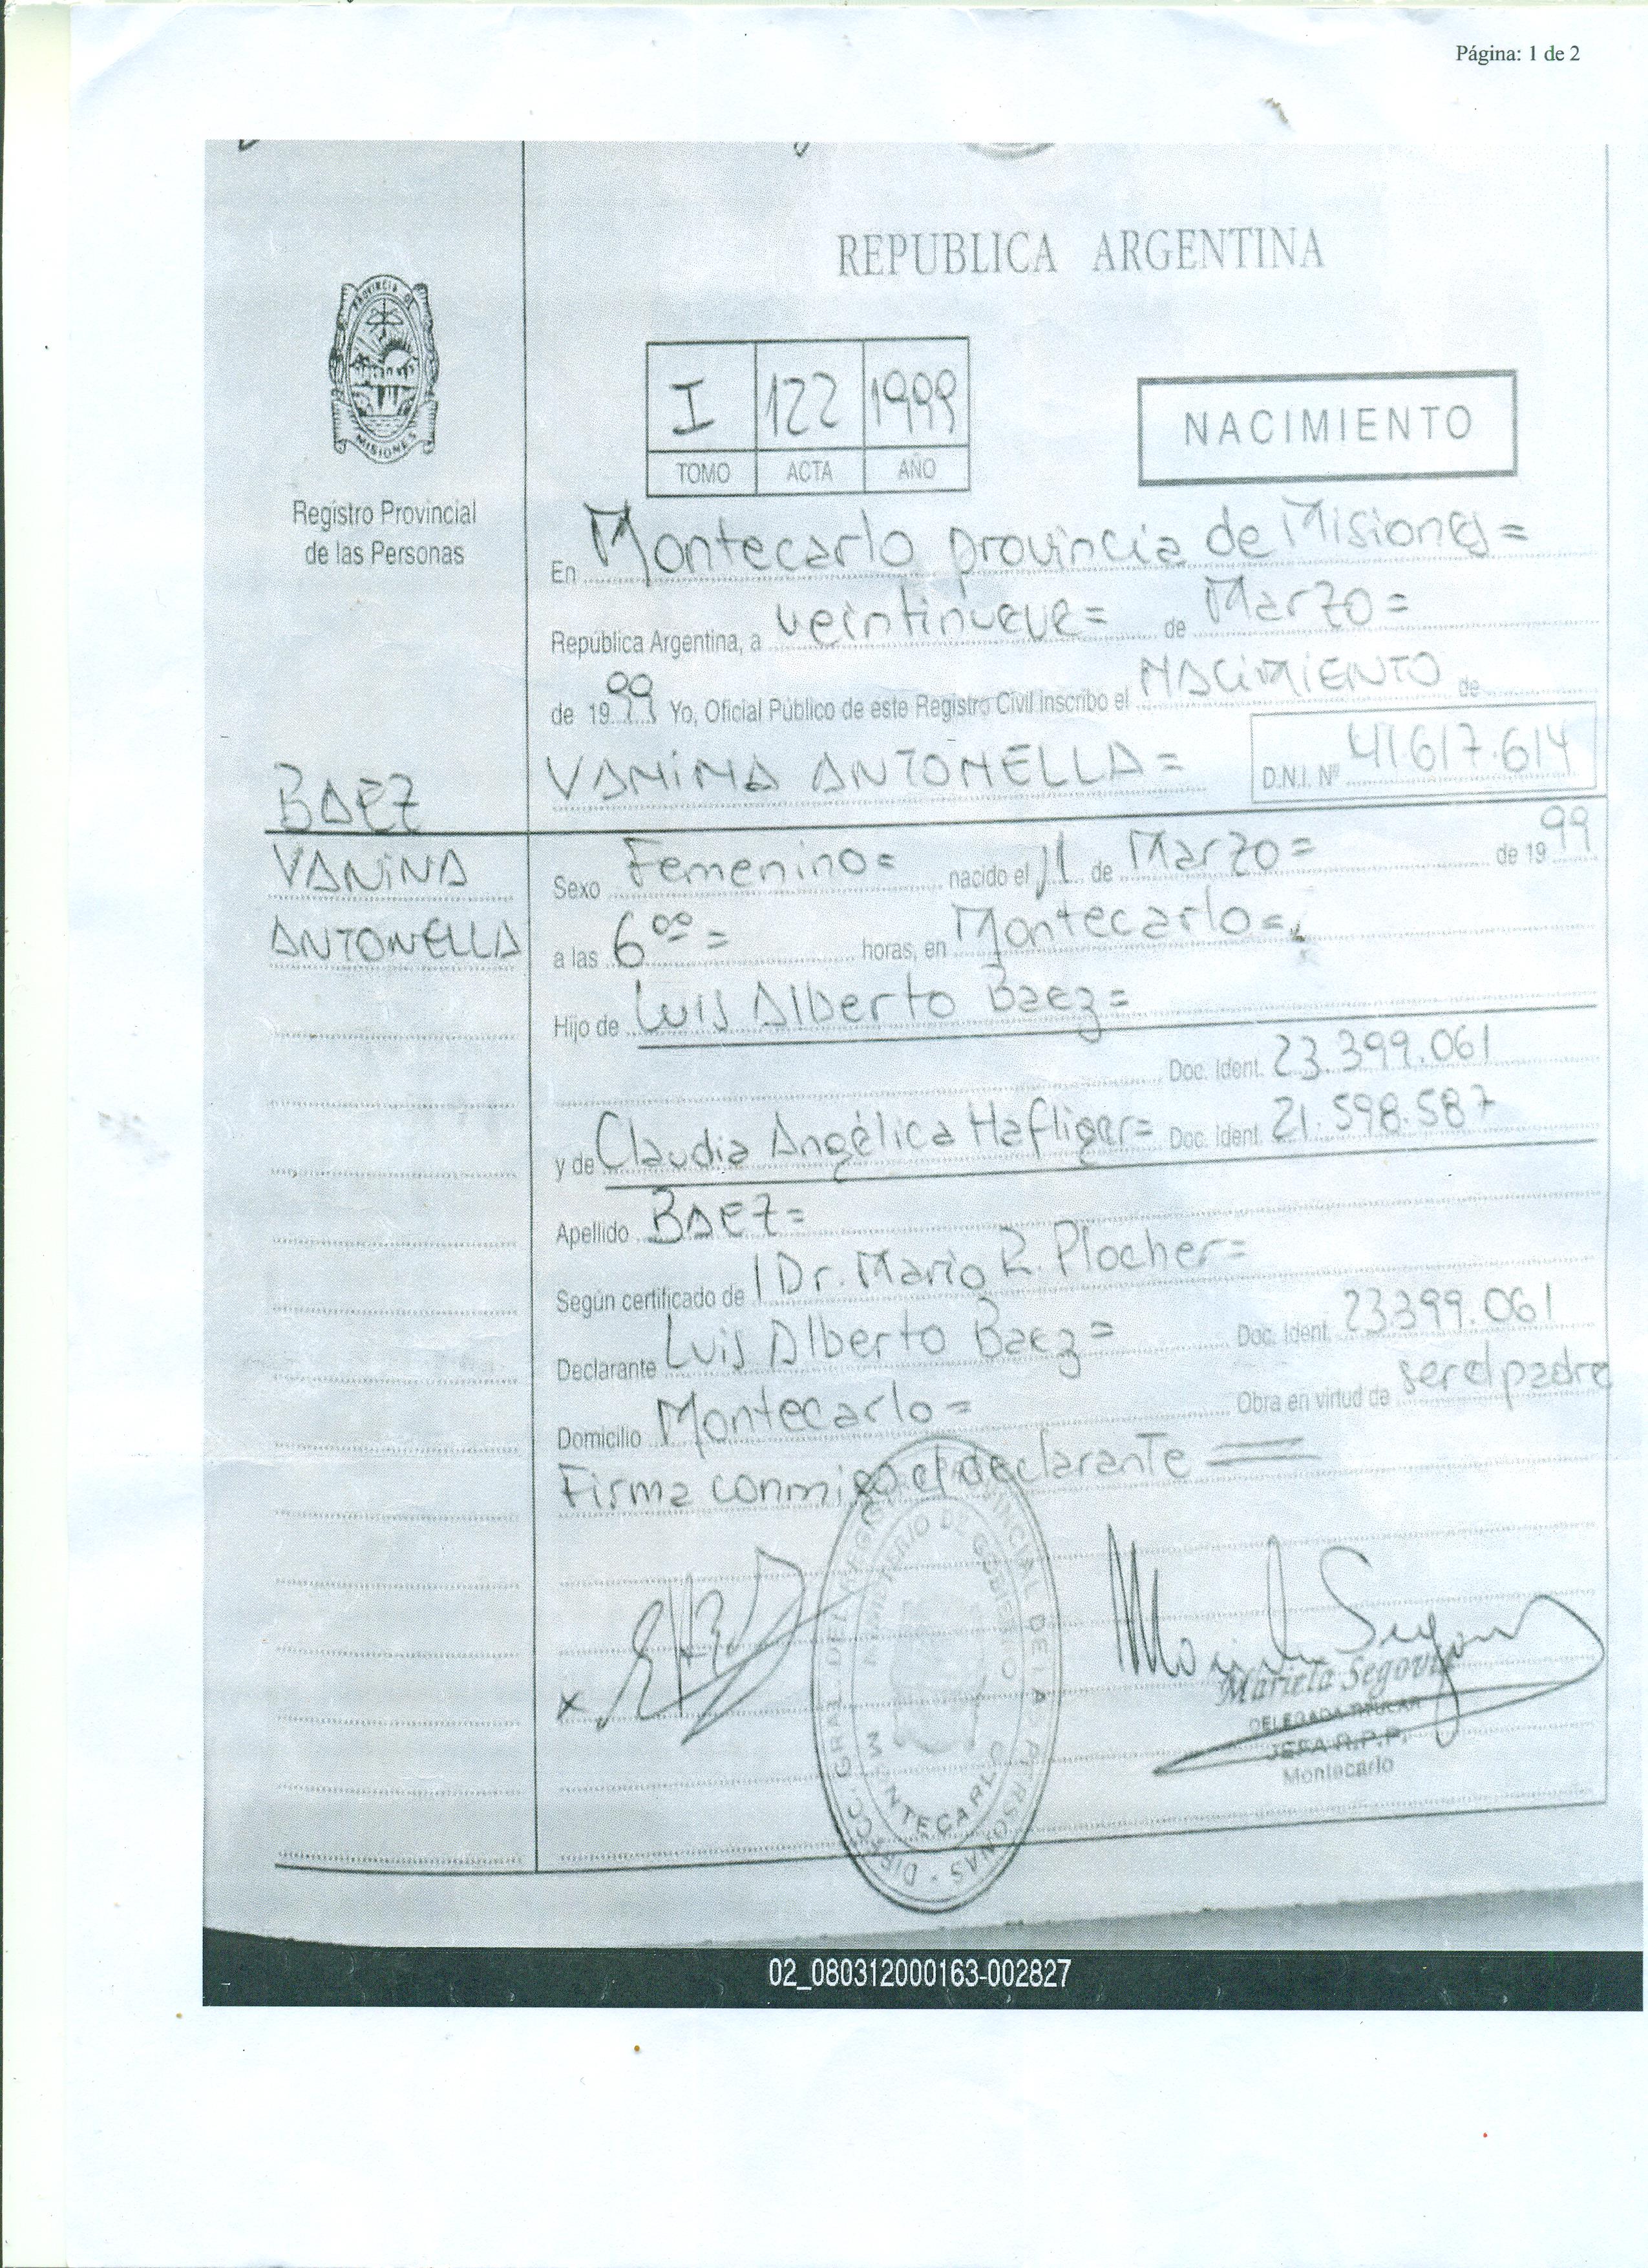 Página: 1 de 2
REPUBLICA ARGENTINA
PROVINCIA DE
MISIONES
I 122 1999
TOMO ACTA AÑO
NACIMIENTO
Registro Provincial
de las Personas
En Montecarlo provincia de Misiones=
República Argentina, a veintinueve= de Marzo=
de 1999 Yo, Oficial Público de este Registro Civil inscribo el NACIMIENTO de
VANINA ANTONELLA= D.N.I. Nº 41617.614
BAEZ
VANINA
ANTONELLA
Sexo Femenino= nacido el 11 de Marzo= de 1999
a las 6ºº= horas, en Montecarlo=
Hijo de Luis Alberto Baez=
Doc. Ident. 23.399.061
y de Claudia Angélica Hafliger= Doc. Ident. 21.598.587
Apellido BAEZ=
Según certificado de l Dr. Mario R. Plocher=
Declarante Luis Alberto Baez= Doc. Ident. 23399.061
Domicilio Montecarlo= Obra en virtud de ser el padre
Firma conmigo el declarante =
DIRECC. GRAL. DEL REGISTRO PROVINCIAL DE LAS PERSONAS
MINISTERIO DE GOBIERNO
MONTECARLO
x
Mariela Segovia
DELEGADA TITULAR
JEFA R.P.P.
Montecarlo
02_080312000163-002827